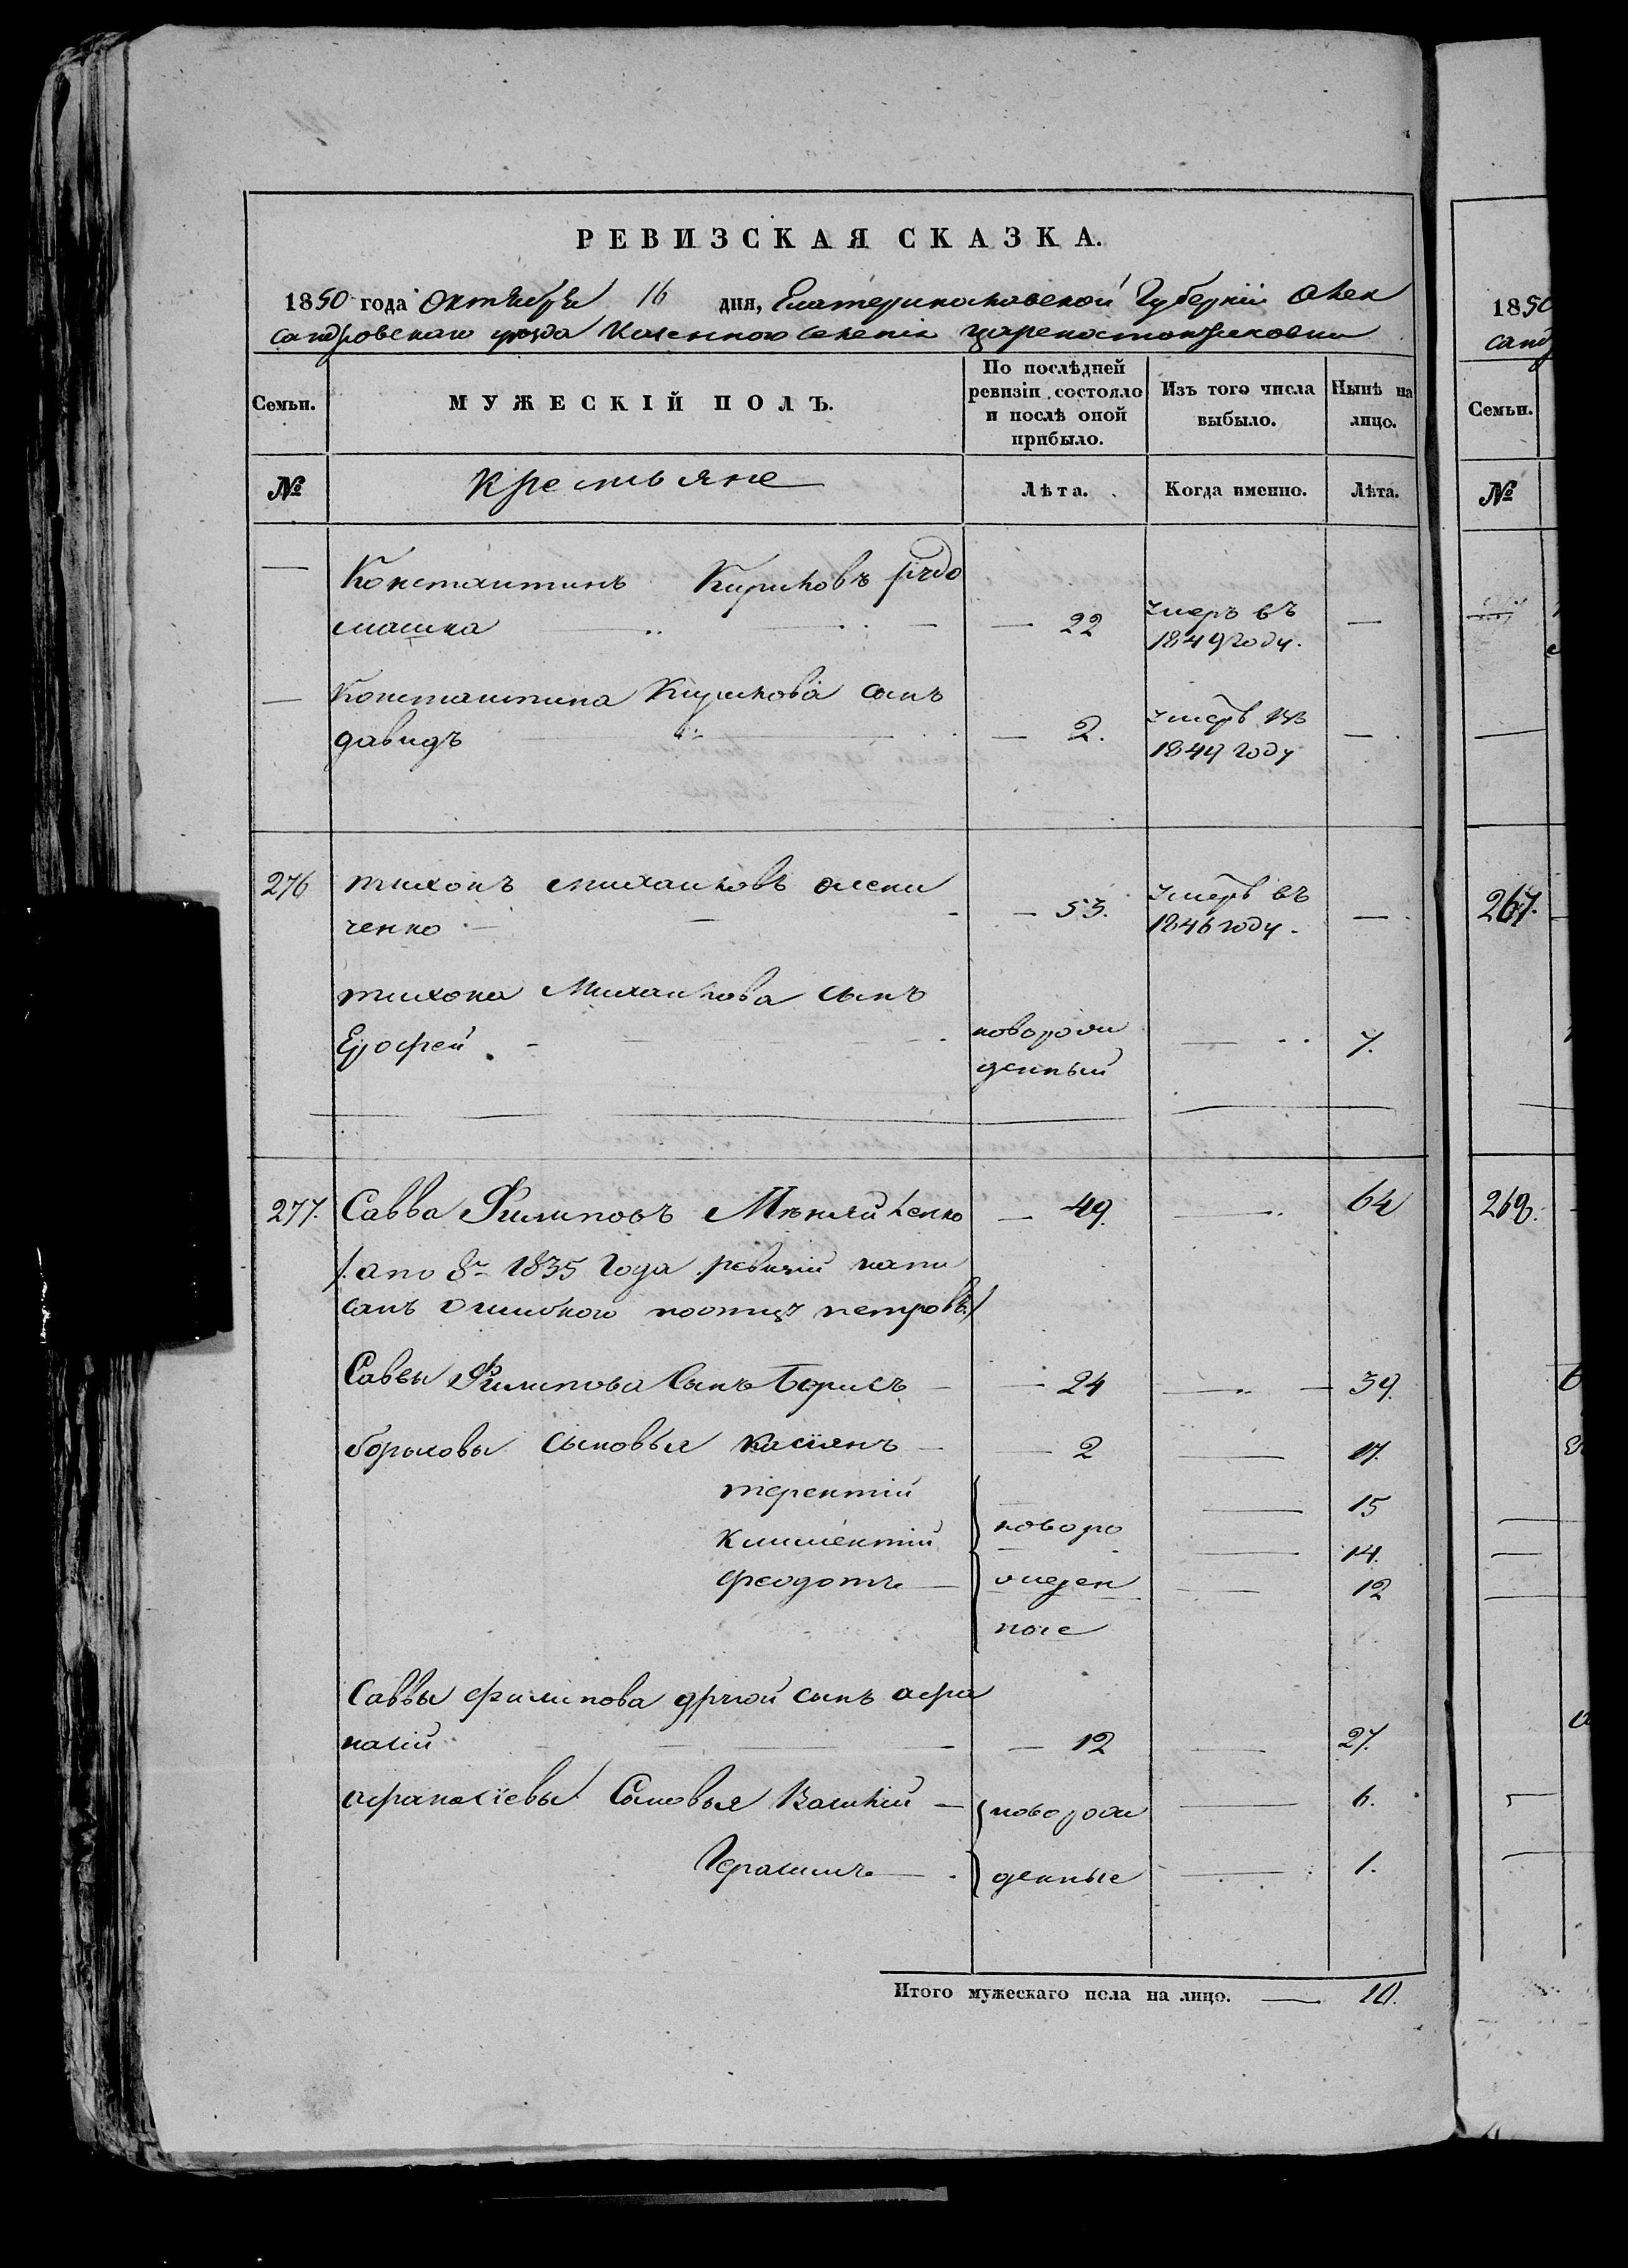 РЕВИЗСКАЯ СКАЗКА.
1850 года Октября 16 дня, Екатеринославской Губерніи Алек
сандровского уезда Казенного Селенія Цареконстантиновки
Семьи.
МУЖЕСКІЙ ПОЛЪ.
По послѣдней ревизіи состояло и послѣ оной прибыло.
Изъ того числа выбыло.
Нынѣ на лицо.
№
Крестьяне
Лѣта.
Когда именно.
Лѣта.
— Константинъ Кириловъ рудо
машка — 22 умеръ въ 1849 году. —
— Константина Кирилова сынъ
давидъ — 2. умеръ въ 1849 году —
276 тихонъ михаиловъ
ченко — 53. умеръ въ 1846 году. —
тихона Михаилова сынъ
Ерофей новорож
денный — 7.
277. Савва Филиповъ — 49. — 64
/. а по 8й 1835 года ревизіи напи
санъ ошибкою по отцу петровъ ./
Саввы Филипова Сынъ Борисъ — 24 — 39.
борисовы сыновья касіянъ — 2 — 17.
терентій — 15
климентій новоро — 14.
феодотъ — жден — 12
ные
Саввы филипова другой сынъ афа
насій — 12 — 27.
афанасіевы Сыновья Василій — новорож — 6.
Герасимъ — денные — 1.
Итого мужескаго пола на лицо. — 10.
1850
санд
Семьи.
№
267.
268.